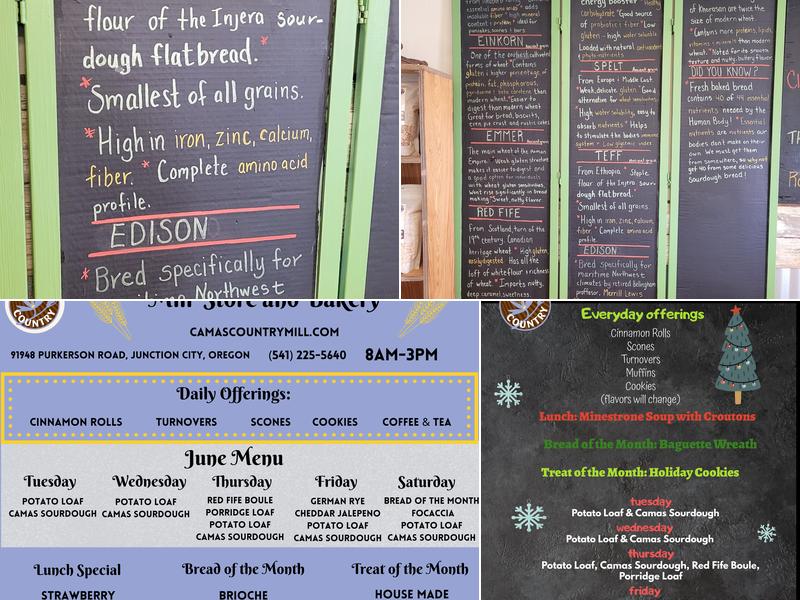 flour of the Injera sour-
dough flatbread.*
*Smallest of all grains.
*High in iron, zinc, calcium,
fiber. * Complete amino acid
profile.
EDISON
*Bred specifically for
Northwest
energy booster
carbohydrate *Good source
of probiotic fiber *Low
gluten - high water soluble
Loaded with natural antioxidants
phyto-nutrients
EINKORN
One of the earliest cultivated
forms of wheat *Contains
gluten & higher percentage of
protein, fat, phosphorous,
modern wheat. *Easier to
digest than modern wheat.
Great for bread, biscuits,
even pie crust and rustic cakes
EMMER
The main wheat of the Roman
Empire. *Weak gluten structure
makes it easier to digest and
a good option for individuals
with wheat gluten sensitivities.
Won't rise significantly in bread
making *Sweet, nutty flavor
RED FIFE
From Scotland, turn of the
19th century. Canadian
heritage wheat * High gluten,
easily digested. Has all the
loft of white flour & richness
of wheat *Imparts nutty,
deep caramel, sweetness.
SPELT
From Europe & Middle East.
*Weak, delicate gluten. *Good
alternative for wheat sensitivities.
*High water solubility, easy to
absorb nutrients * Helps
to stimulate the bodies immune
system * Low glycemic index
TEFF
From Ethiopia. * Staple
flour of the Injera sour-
dough flatbread.*
*Smallest of all grains.
*High in iron, zinc, calcium,
fiber. * Complete amino acid
profile.
EDISON
*Bred specifically for
maritime Northwest
climates by retired Bellingham
professor, Merrill Lewis
of Khorasan are twice the
size of modern wheat.
*Contains more proteins, lipids,
vitamins & minerals than modern
wheat. *Noted for its smooth
texture and nutty, buttery flavor.
DID YOU KNOW?
*Fresh baked bread
contains 40 of 44 essential
nutrients needed by the
Human Body! * Essential
nutrients are nutrients our
bodies don't make on their
own. We must get them
from somewhere, so why not
get 40 from some delicious
sourdough bread!
COUNTRY
Mill Store and Bakery
CAMASCOUNTRYMILL.COM
91948 PURKERSON ROAD, JUNCTION CITY, OREGON (541) 225-5640 8AM-3PM
Daily Offerings:
CINNAMON ROLLS TURNOVERS SCONES COOKIES COFFEE & TEA
June Menu
Tuesday Wednesday Thursday Friday Saturday
POTATO LOAF POTATO LOAF RED FIFE BOULE GERMAN RYE BREAD OF THE MONTH
CAMAS SOURDOUGH CAMAS SOURDOUGH PORRIDGE LOAF CHEDDAR JALEPENO FOCACCIA
POTATO LOAF POTATO LOAF POTATO LOAF
CAMAS SOURDOUGH CAMAS SOURDOUGH CAMAS SOURDOUGH
Lunch Special Bread of the Month Treat of the Month
STRAWBERRY BRIOCHE HOUSE MADE
COUNTRY
Everyday offerings
Cinnamon Rolls
Scones
Turnovers
Muffins
Cookies
(flavors will change)
Lunch: Minestrone Soup with Croutons
Bread of the Month: Baguette Wreath
Treat of the Month: Holiday Cookies
tuesday
Potato Loaf & Camas Sourdough
wednesday
Potato Loaf & Camas Sourdough
thursday
Potato Loaf, Camas Sourdough, Red Fife Boule,
Porridge Loaf
friday